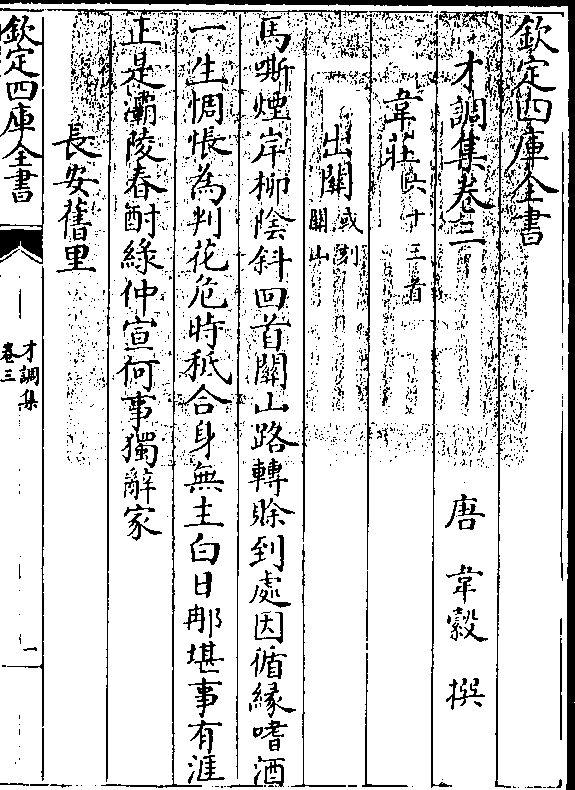 欽定四庫全書
才調集卷三
唐 韋縠 撰
韋莊六十三首
出關或刻關山
馬嘶煙岸柳陰斜回首關山路轉賒到處因循緣嗜酒
一生惆悵為判花危時秖合身無主白日那堪事有涯
正是灞陵春酎綠仲宣何事獨辭家
長安舊里
欽定四庫全書
才調集
卷三
一